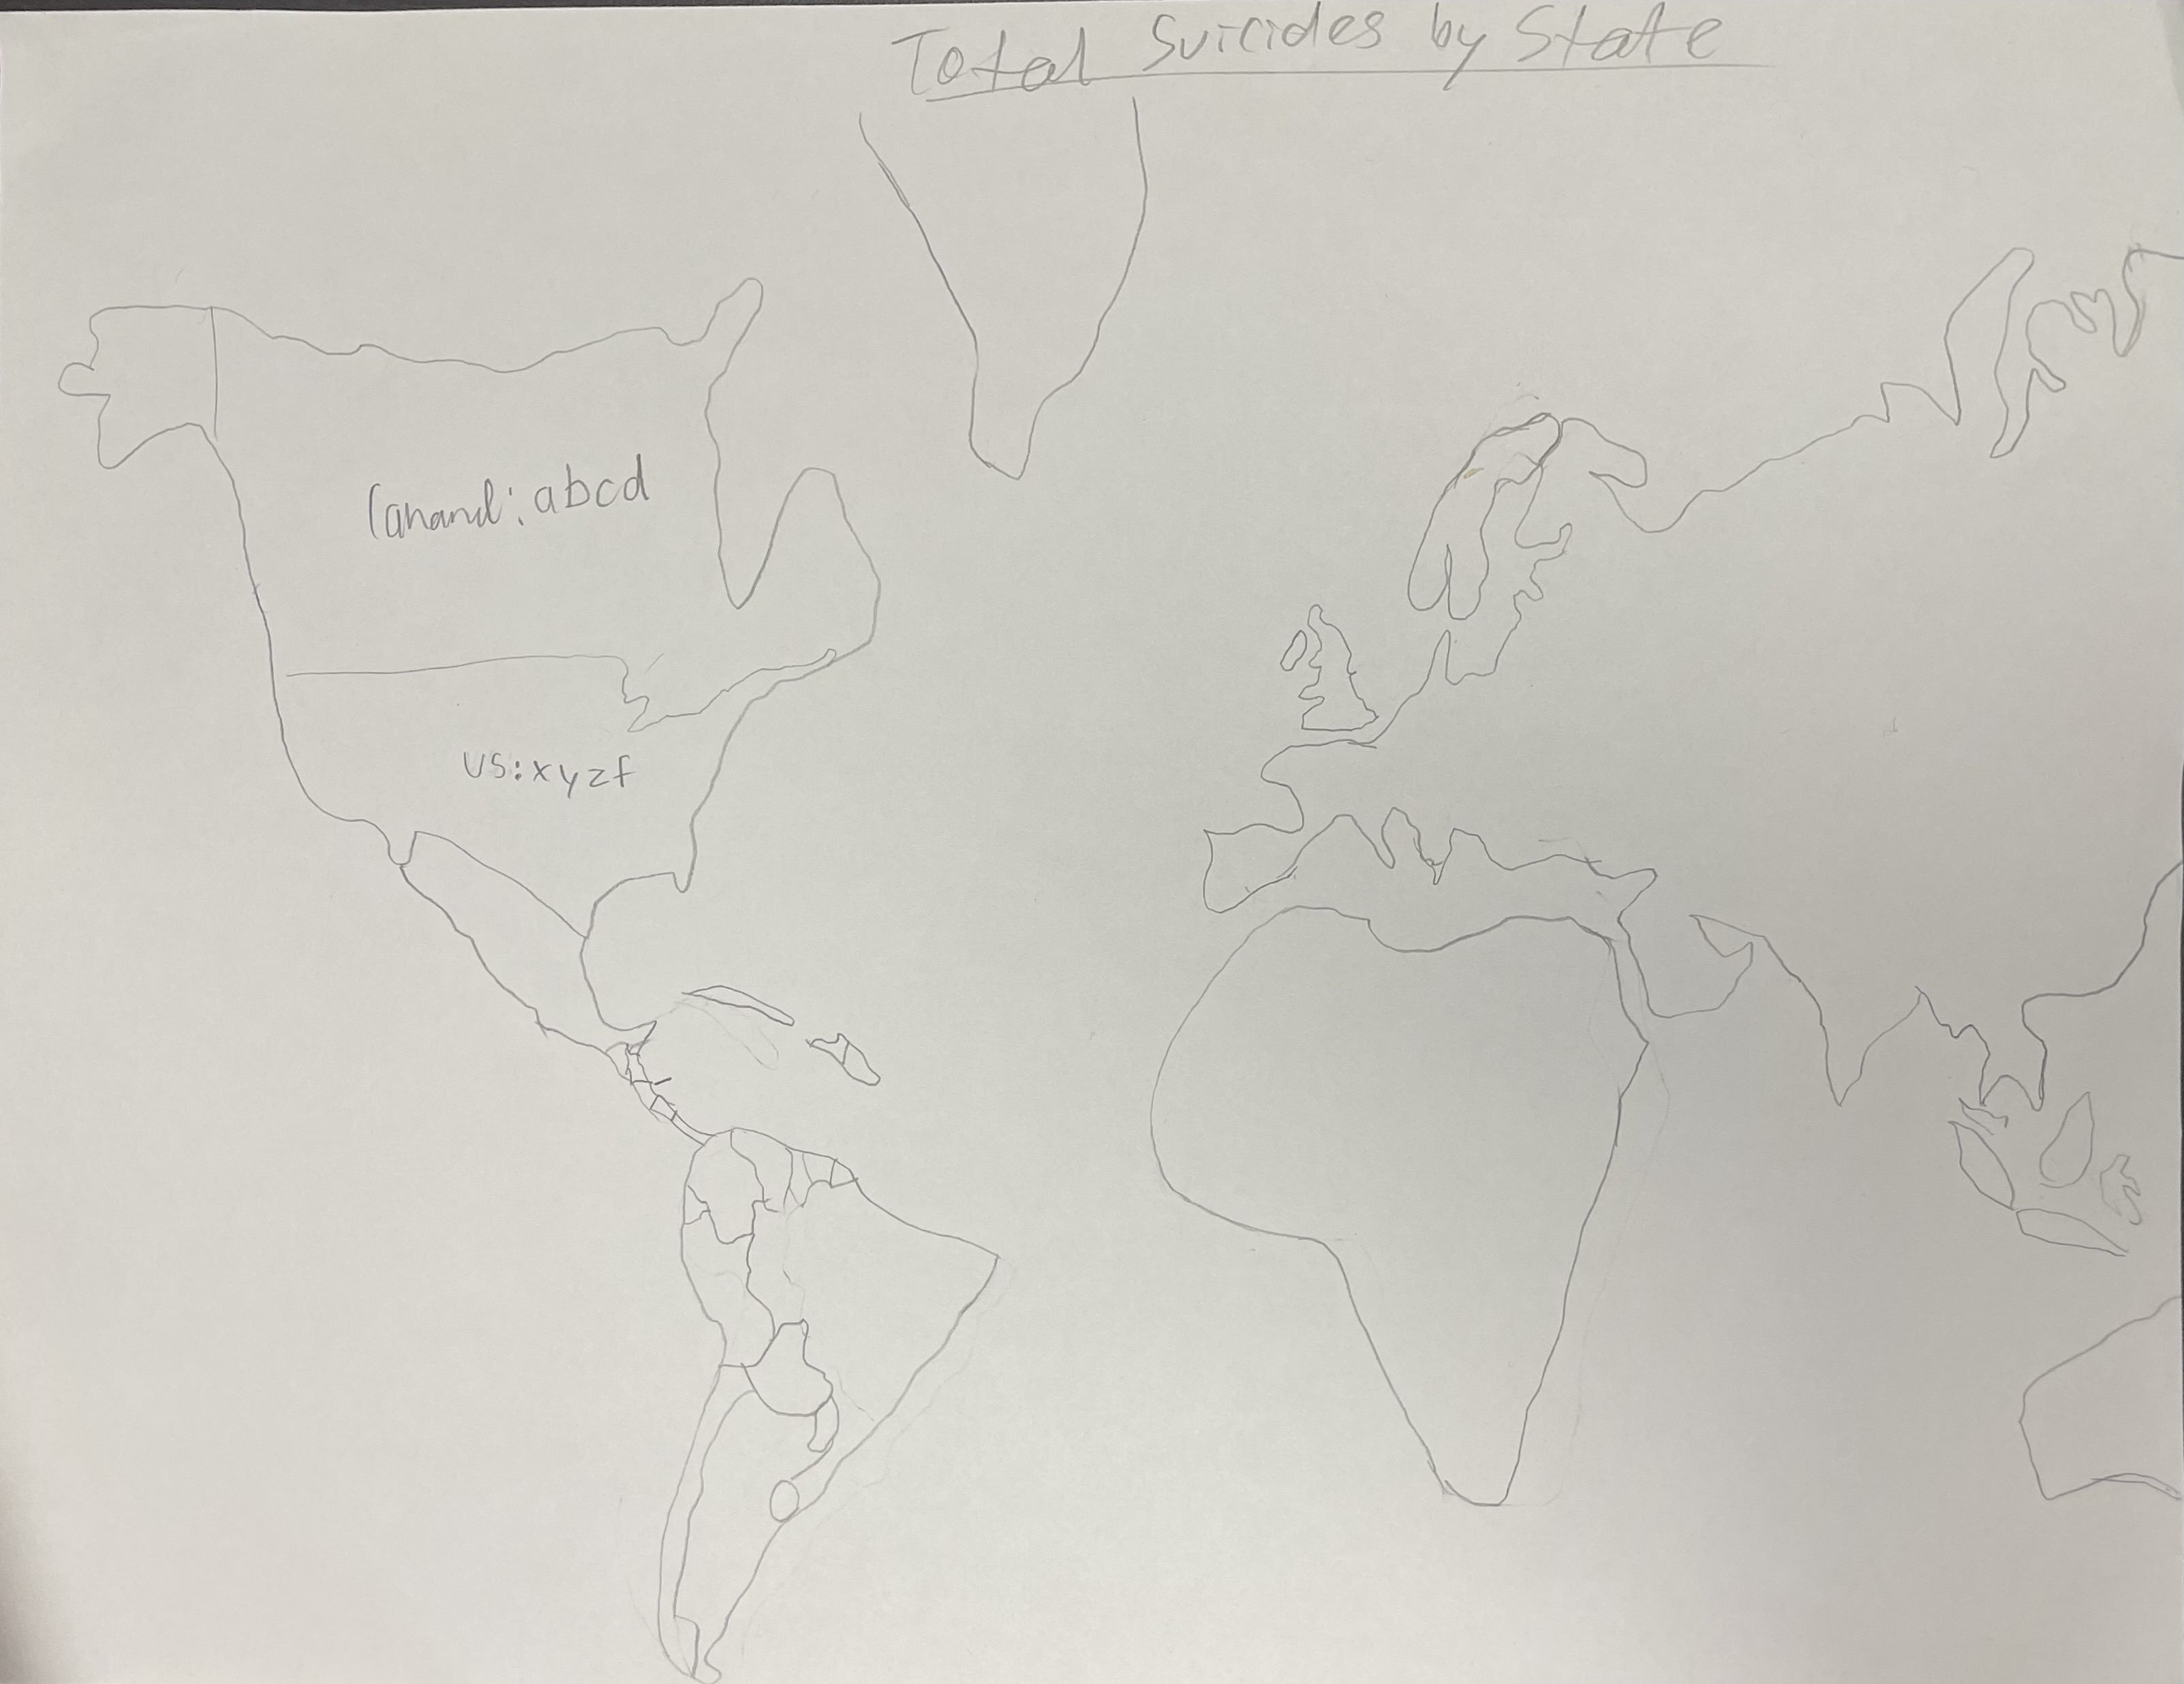 Total Suicides by State
Canand: abcd
US: xyzf